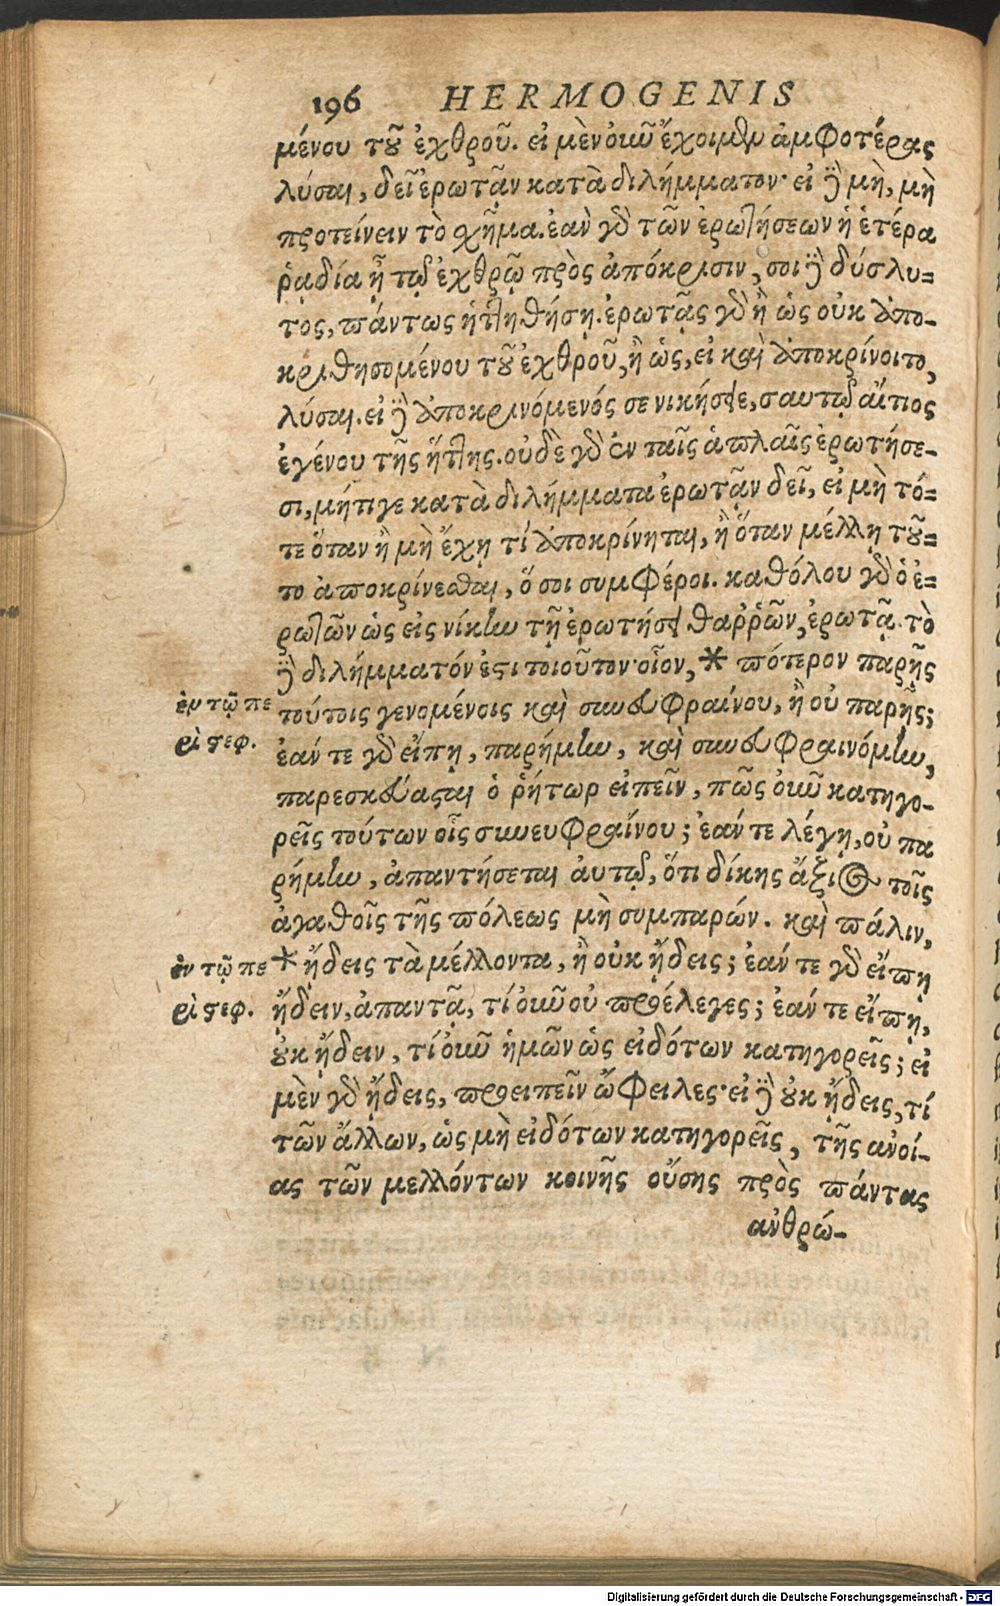 196 HERMOGENIS
μένου τοῦ ἐχθροῦ. εἰ μὲν οὖν ἔχοιμεν ἀμφοτέρας
λύσαι, δεῖ ἐρωτᾷν κατὰ διλήμματον· εἰ δὲ μὴ, μὴ
προτείνειν τὸ σχῆμα. ἐὰν γὰρ τῶν ἐρωτήσεων ἡ ἑτέρα
ῥᾳδία ᾖ τῷ ἐχθρῷ πρὸς ἀπόκρισιν, σοι δὲ δύσλυ-
τος, πάντως ἡττηθήσῃ. ἐρωτᾷς γὰρ ἢ ὡς οὐκ ἀπο-
κριθησομένου τοῦ ἐχθροῦ, ἢ ὡς, εἰ καὶ ἀποκρίνοιτο,
λύσαι. εἰ δὲ ἀποκρινόμενός σε νικήσειε, σαυτῷ αἴτιος
ἐγένου τῆς ἥττης. οὐδὲ γὰρ ἐν ταῖς ἁπλαῖς ἐρωτήσε-
σι, μήτιγε κατὰ διλήμματα ἐρωτᾷν δεῖ, εἰ μὴ τό-
τε ὅταν ἢ μὴ ἔχῃ τί ἀποκρίνηται, ἢ ὅταν μέλλῃ τοῦ-
το ἀποκρίνεσθαι, ὅ σοι συμφέροι. καθόλου γὰρ ὁ ἐ-
ρωτῶν ὡς εἰς νίκην τῇ ἐρωτήσει θαῤῥῶν, ἐρωτᾷ. τὸ
δὲ διλήμματόν ἐστι τοιοῦτον· οἷον, * πότερον παρῇς
ἐν τῷ πε τούτοις γενομένοις καὶ συνευφραίνου, ἢ οὐ παρῇς;
ρὶ στεφ. ἐάν τε γὰρ εἴπῃ, παρήμην, καὶ συνευφραινόμην,
παρεσκεύασται ὁ ῥήτωρ εἰπεῖν, πῶς οὖν κατηγο-
ρεῖς τούτων οἷς συνευφραίνου; ἐάν τε λέγῃ, οὐ πα
ρήμην, ἀπαντήσεται αὐτῷ, ὅτι δίκης ἄξιος τοῖς
ἀγαθοῖς τῆς πόλεως μὴ συμπαρών. καὶ πάλιν,
ἐν τῷ πε * ᾔδεις τὰ μέλλοντα, ἢ οὐκ ᾔδεις; ἐάν τε γὰρ εἴπῃ
ρὶ στεφ. ᾔδειν, ἀπαντᾷ, τί οὖν οὐ προέλεγες; ἐάν τε εἴπῃ,
οὐκ ᾔδειν, τί οὖν ἡμῶν ὡς εἰδότων κατηγορεῖς; εἰ
μὲν γὰρ ᾔδεις, προειπεῖν ὤφειλες· εἰ δὲ οὐκ ᾔδεις, τί
τῶν ἄλλων, ὡς μὴ εἰδότων κατηγορεῖς, τῆς ἀνοί-
ας τῶν μελλόντων κοινῆς οὔσης πρὸς πάντας
ἀνθρώ-
Digitalisierung gefördert durch die Deutsche Forschungsgemeinschaft - DFG